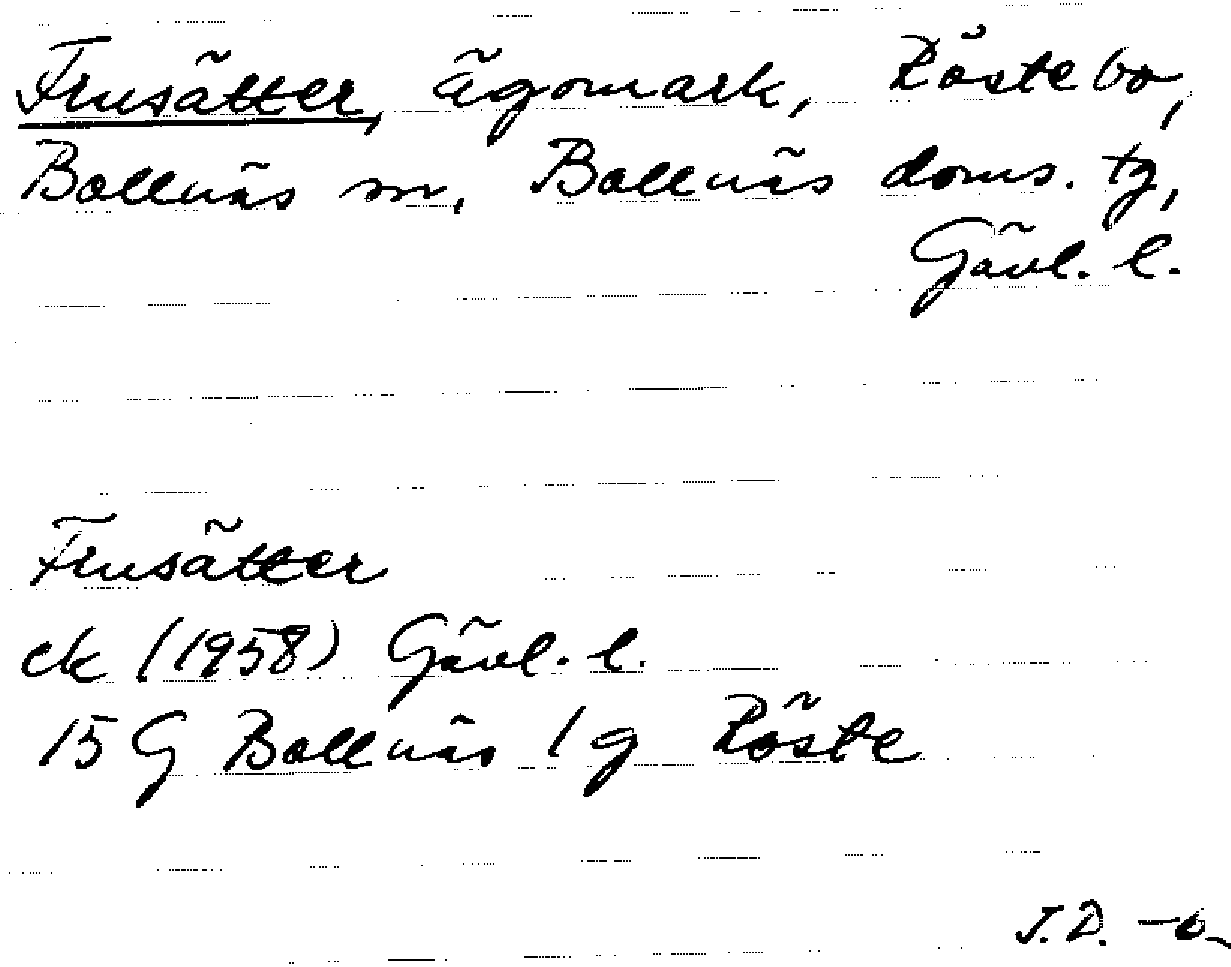 Frusätter, ägomark, Röstebo,
Bollnäs sn, Bollnäs doms. tg,
Gävl. l.
Frusätter
ek (1958) Gävl. l.
15 G Bollnäs 1 g Röste
J.D.